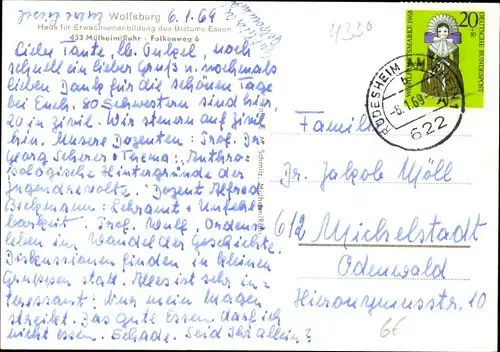 Wolfsburg 6.1.69
Haus für Erwachsenenbildung des Bistums Essen
433 Mülheim/Ruhr - Falkenweg 6
4330
Liebe Tante, lb. Onkel, noch
schnell ein lieber Gruß u. nochmals
lieben Dank für die schönen Tage
bei Euch. 80 Schwestern sind hier,
20 in Zivil. Wir steuern auf Zivil
hin. Unsere Dozenten: Prof. Dr.
Georg Scherer: Thema: Anthro-
pologische Hintergründe der
Jugendrevolte. Dozent Alfred
Lehramt + Unfehl-
barkeit. Prof. Wulf, Ordens-
leben im Wandel der Geschichte.
Diskussionen finden in kleinen
Gruppen statt. Alles ist sehr in-
teressant: Nur mein Magen
streikt. Das gute Essen darf ich
nicht essen. Schade. Seid Ihr allein?
WOHLFAHRTSMARKE 1968
20
+10
DEUTSCHE BUNDESPOST
RÜDESHEIM AM
-8.1.69-
622
Familie
Dr. Jakob Möll
612 Michelstadt
Odenwald
Hieronymusstr. 10
6€